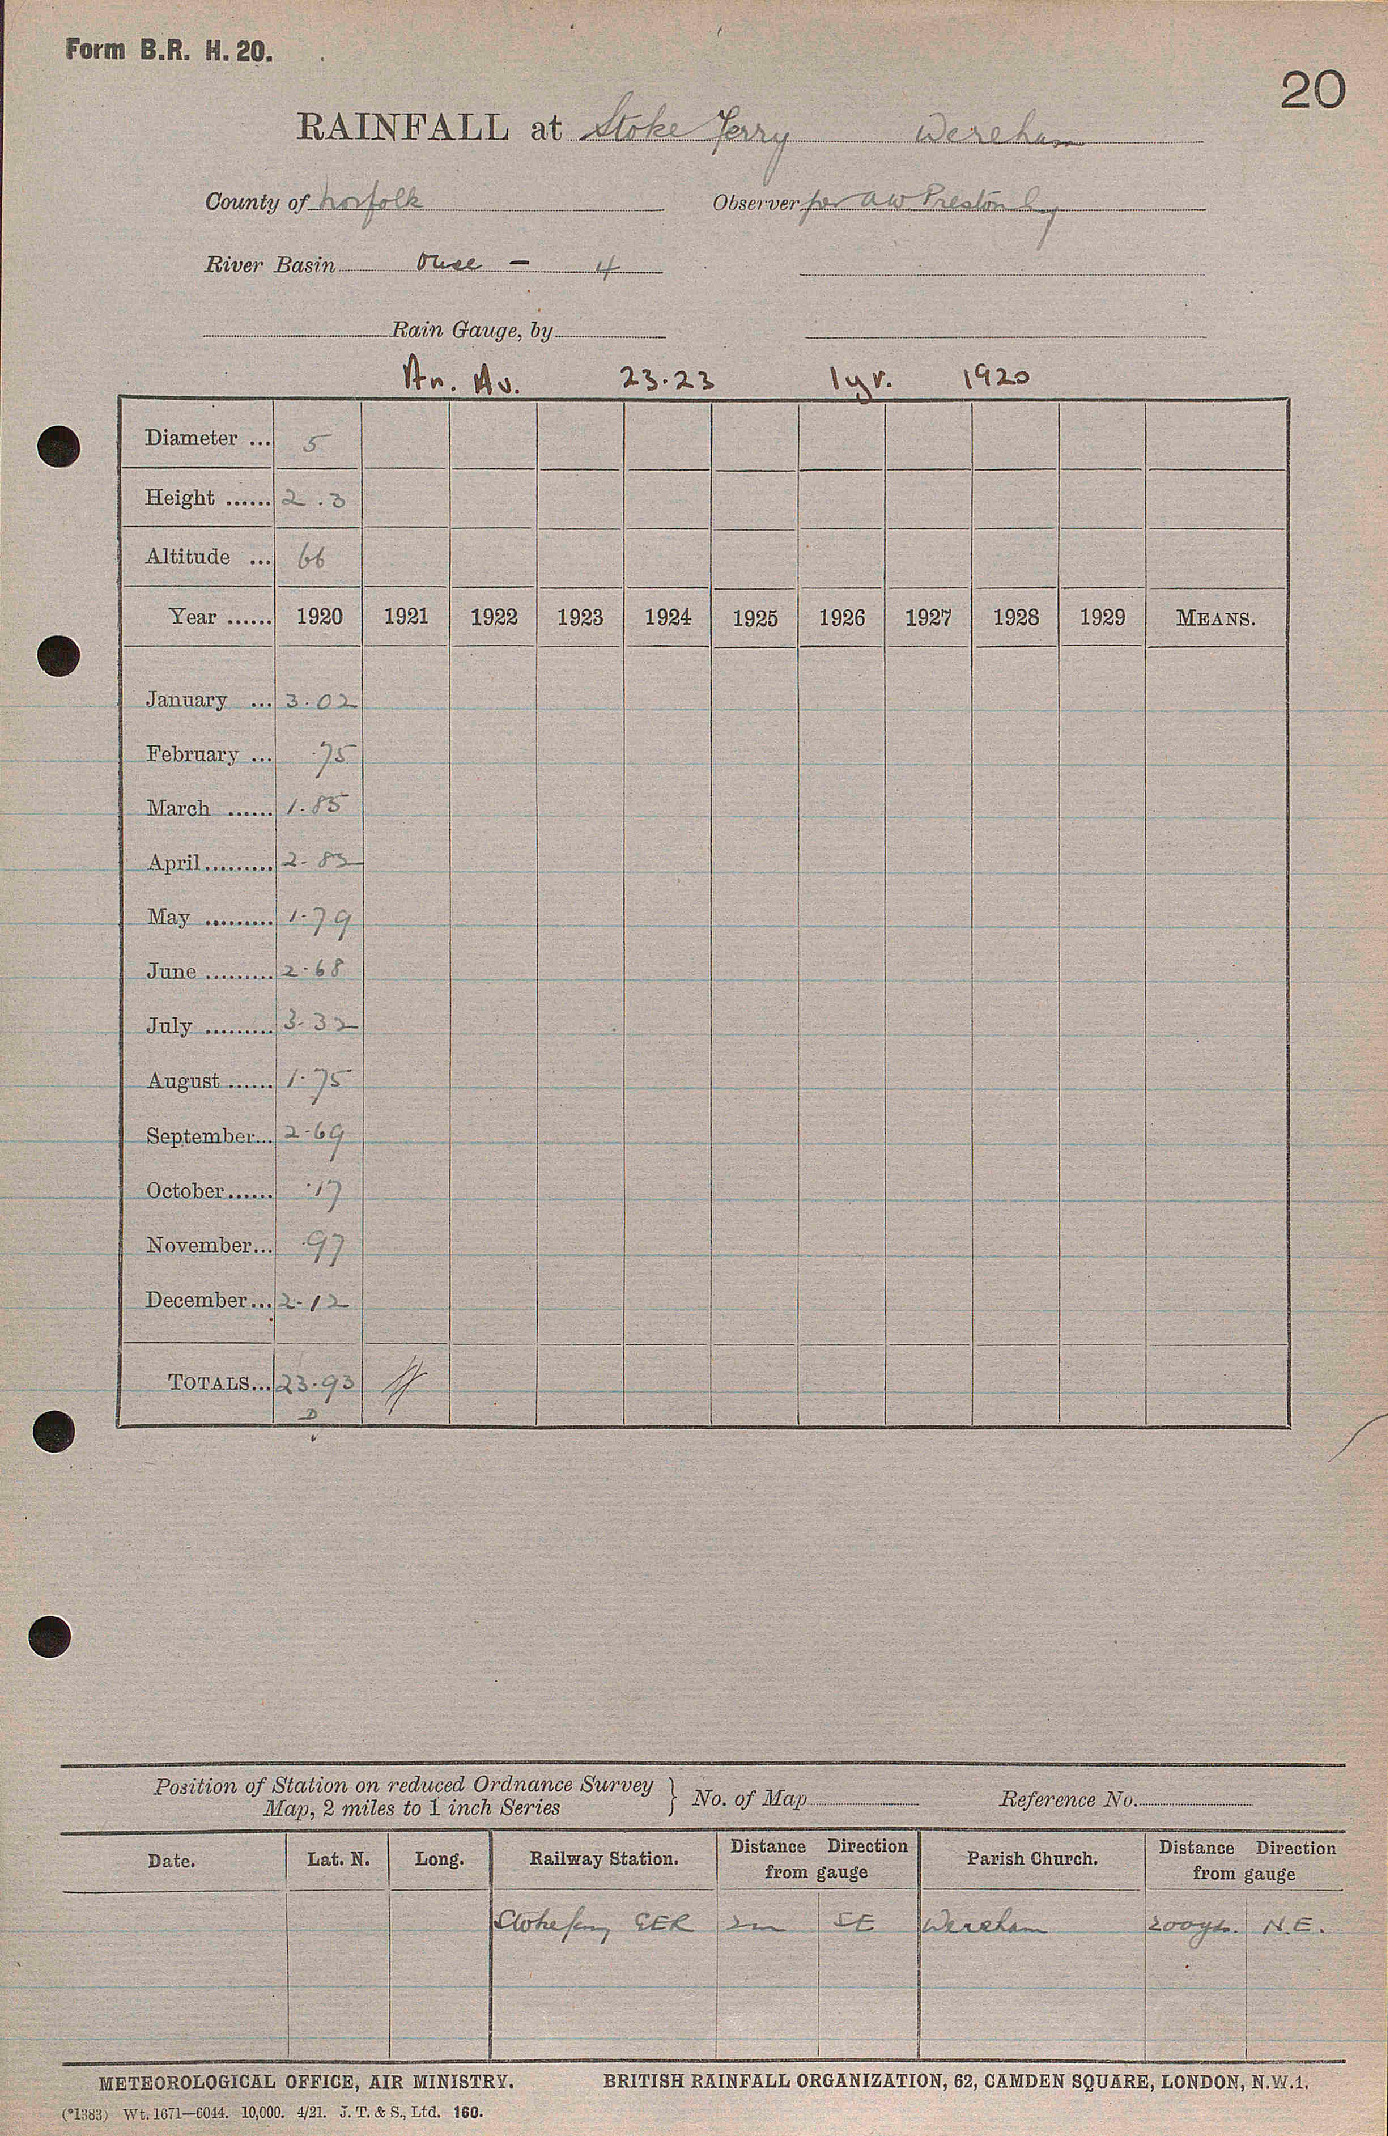 Form B.R. H. 20.
20
RAINFALL at Stoke Ferry Wereham
County of Norfolk Observer per A W Preston Esq
River Basin Ouse - 4
Rain Gauge, by
An. Av. 23.23 1 yr. 1920
Diameter ... 5
Height ...... 2.3
Altitude ... 66
Year ...... 1920 1921 1922 1923 1924 1925 1926 1927 1928 1929 MEANS.
January ... 3.02
February ... .75
March ...... 1.85
April ......... 2.82
May ......... 1.79
June ......... 2.68
July ......... 3.32
August ...... 1.75
September... 2.69
October ...... .17
November... .97
December... 2.12
TOTALS... 23.93
D
Position of Station on reduced Ordnance Survey
Map, 2 miles to 1 inch Series } No. of Map Reference No.
Date. Lat. N. Long. Railway Station. Distance Direction from gauge Parish Church. Distance Direction from gauge
Stoke Ferry GER 2m SE Wereham 200yds. N.E.
METEOROLOGICAL OFFICE, AIR MINISTRY. BRITISH RAINFALL ORGANIZATION, 62, CAMDEN SQUARE, LONDON, N.W.1.
(*1383) Wt. 1671—6044. 10,000. 4/21. J. T. & S., Ltd. 160.